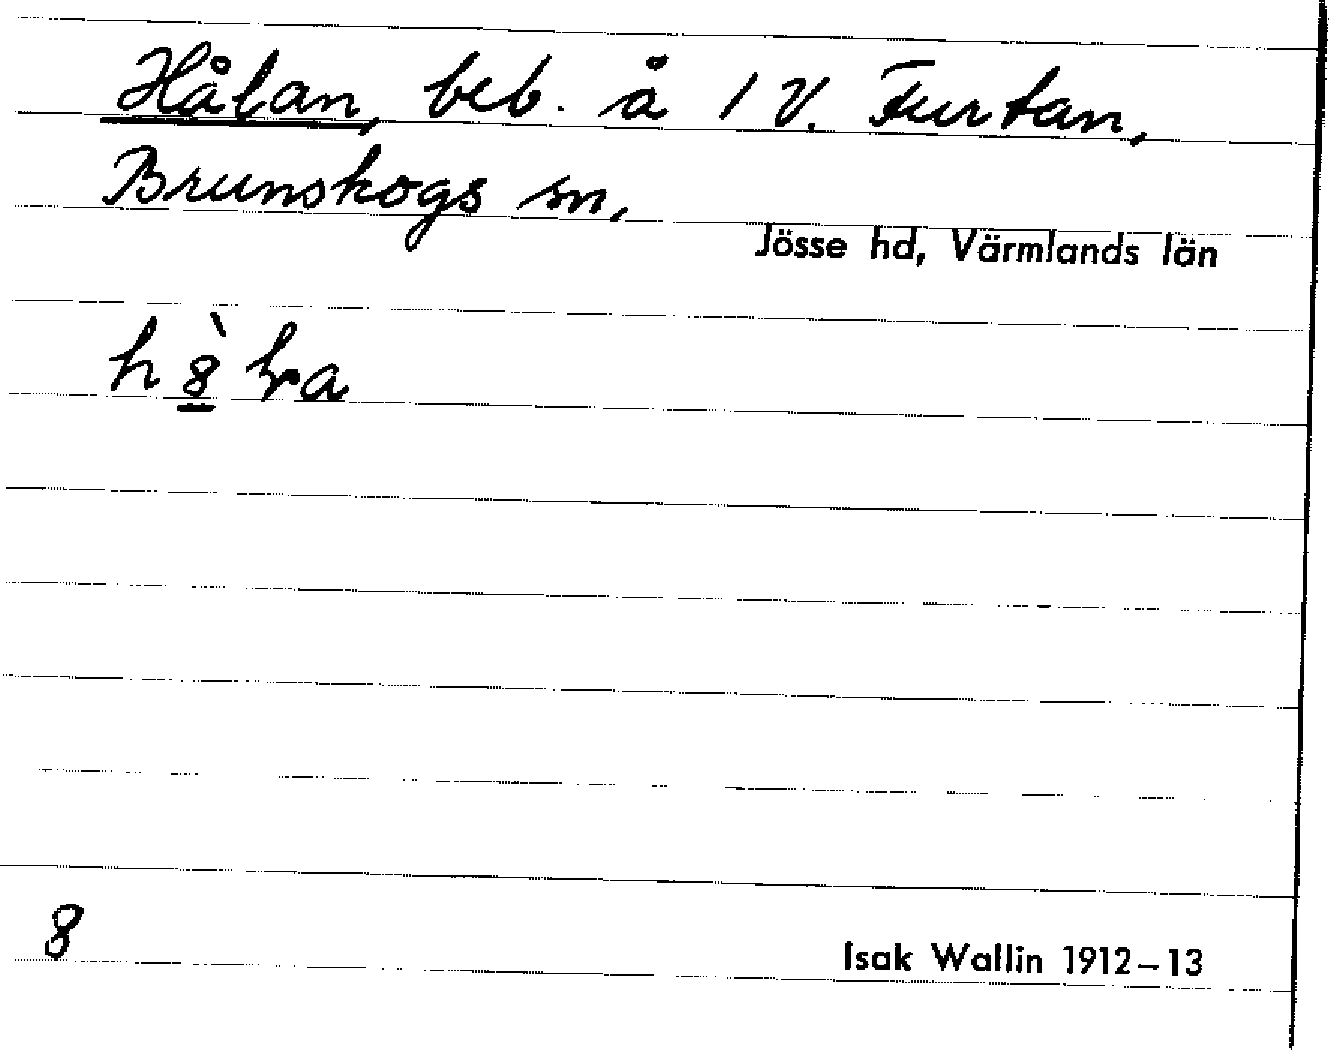 Hålan, beb. å 1 V. Furtan,
Brunskogs sn,
Jösse hd, Värmlands län
8
Isak Wallin 1912–13